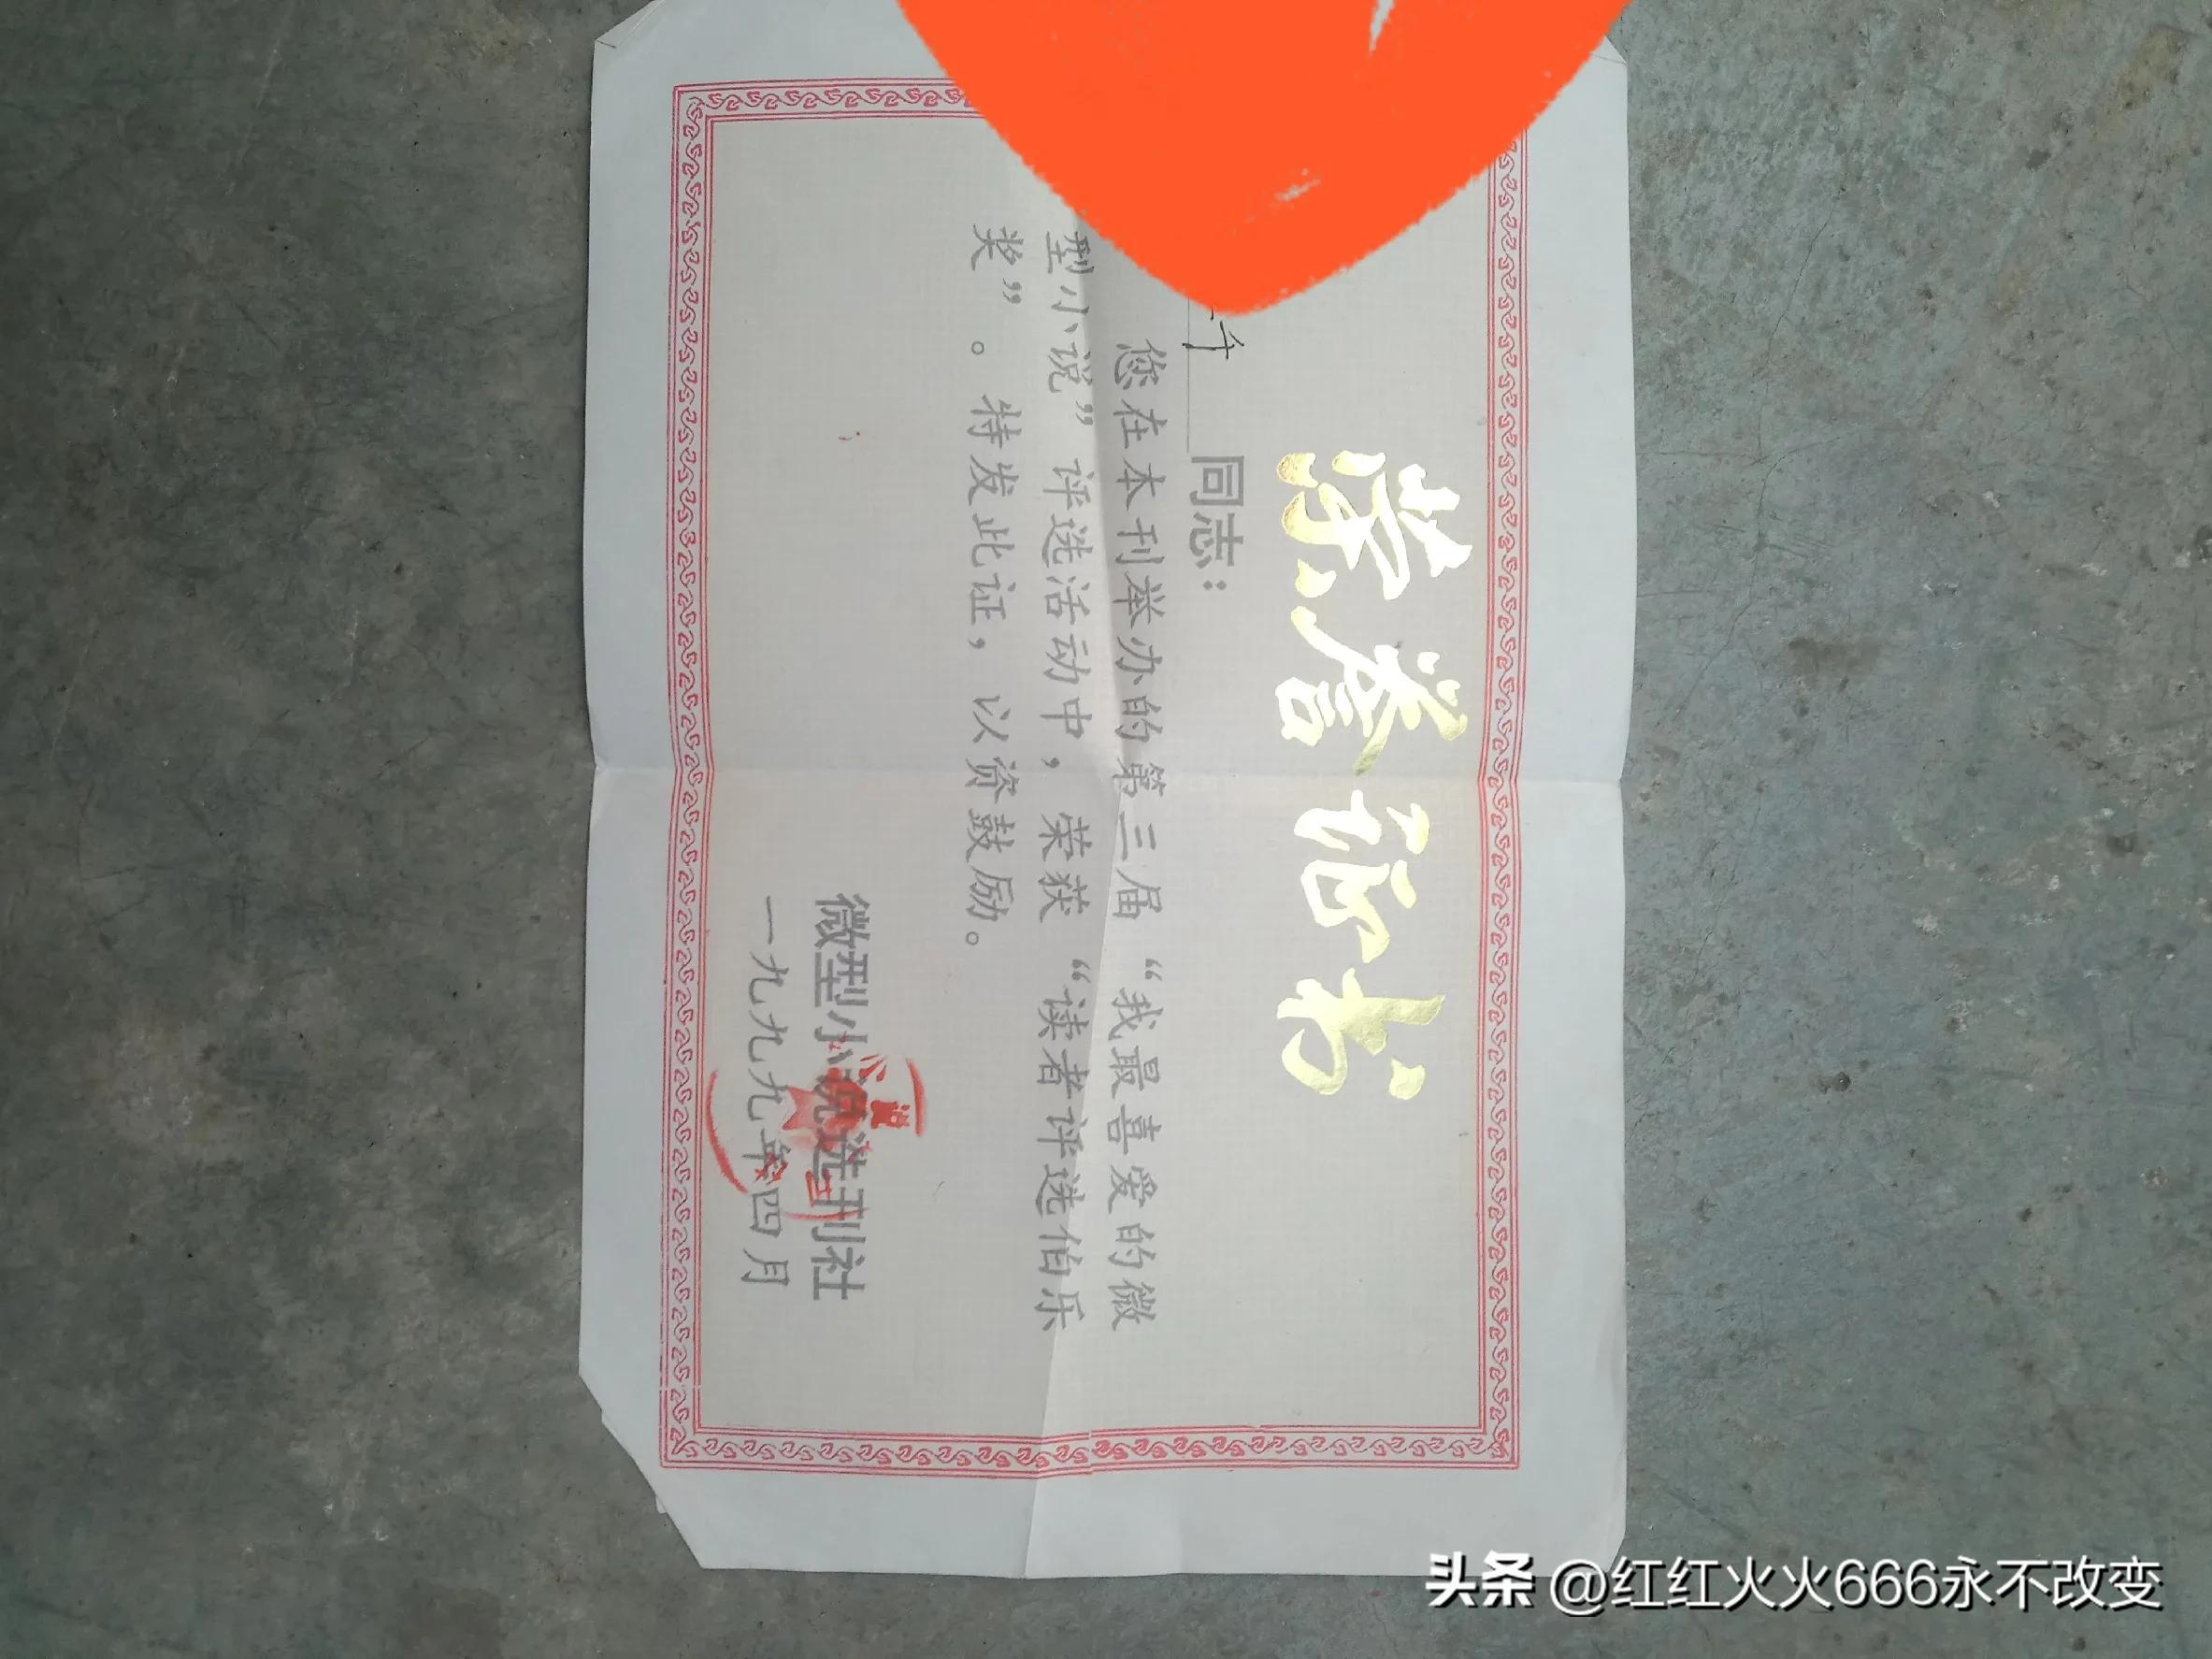 荣誉证书
同志：
您在本刊举办的第三届“我最喜爱的微
型小说”评选活动中，荣获“读者评选伯乐
奖”。特发此证，以资鼓励。
微型小说选刊社
一九九九年四月
头条 @红红火火666永不改变